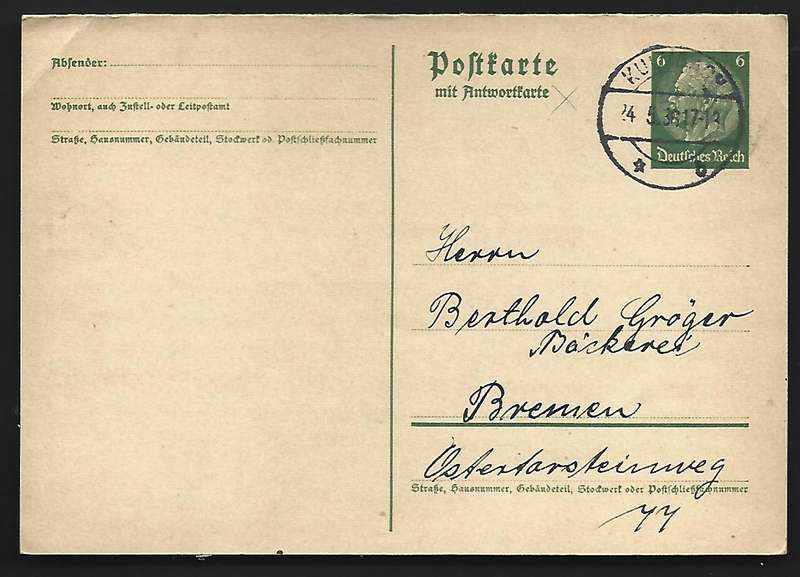 Absender:
Wohnort, auch Zustell- oder Leitpostamt
Straße, Hausnummer, Gebäudeteil, Stockwerk od. Postschließfachnummer
Postkarte
mit Antwortkarte
6 6
Deutsches Reich
24 5 17-18
Herrn
Berthold Gröger
Bäckerei
Bremen
Ostertorsteinweg
Straße, Hausnummer, Gebäudeteil, Stockwerk oder Postschließfachnummer
77